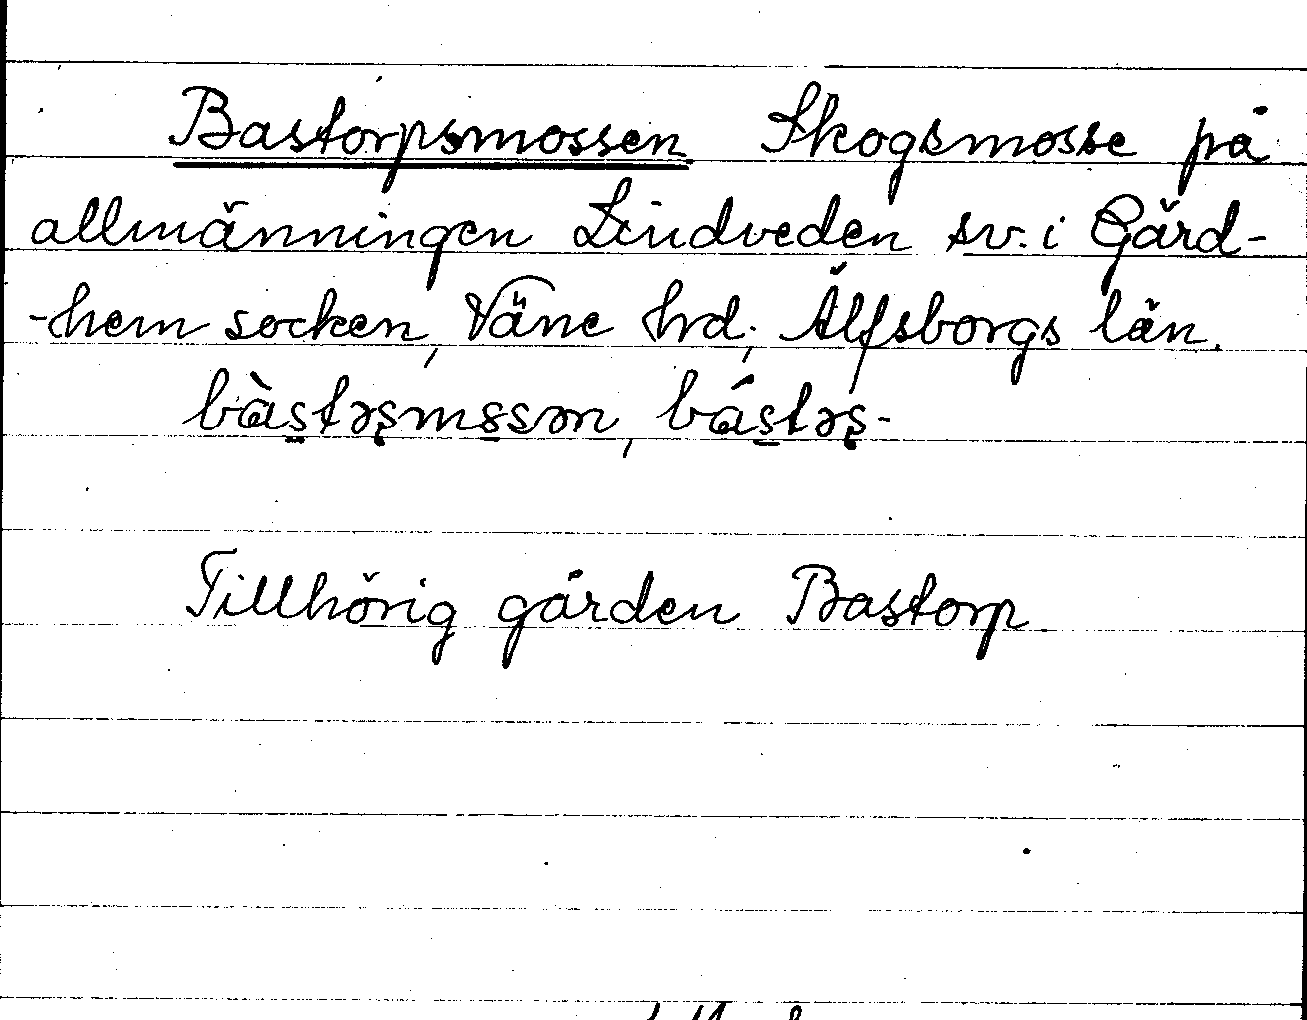 Bastorpsmossen Skogsmosse på
allmänningen Lindveden sv. i Gärd-
-hem socken, Väne hrd; Älfsborgs län.
bàs̱tərs̱ms̱sən, bás̱təs̱-
Tillhörig gården Bastorp